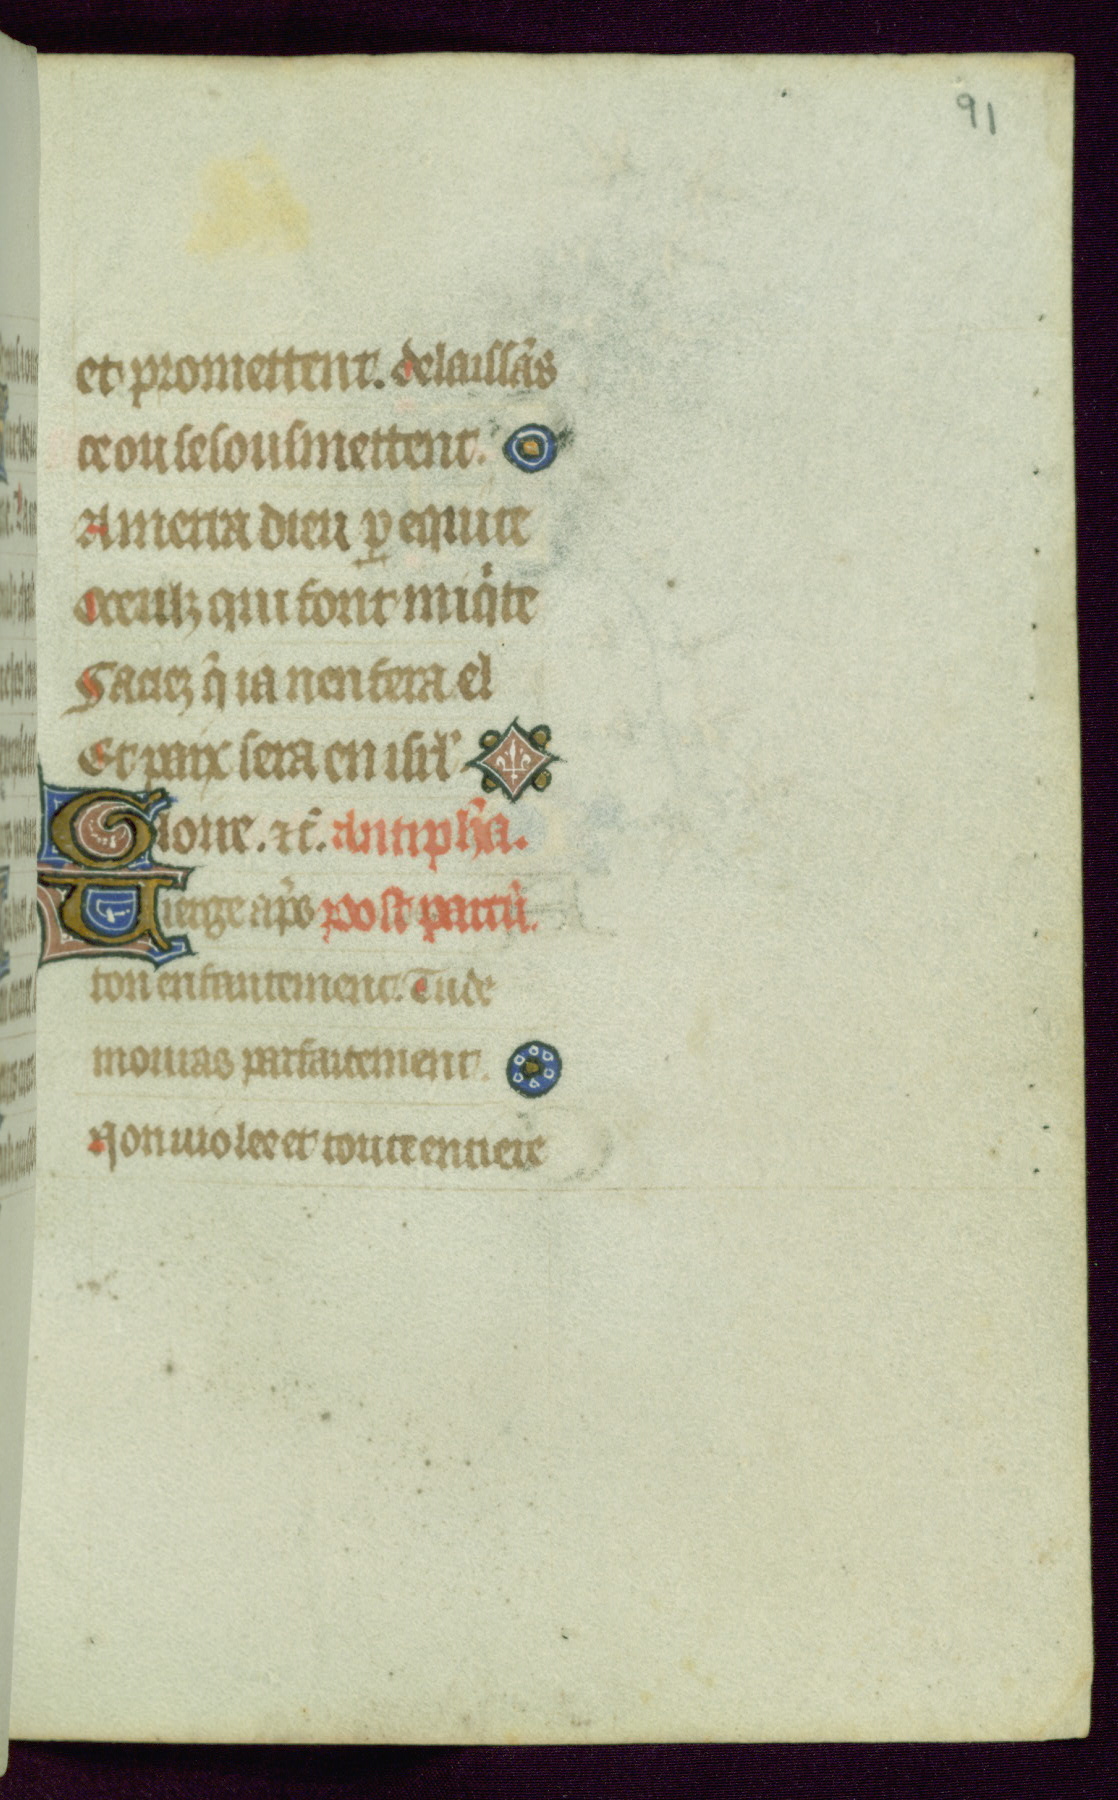 91
et promettent. delaissās
ce ou se sousmettent.
Amerra dieu ꝑ equite
Ceeulz qui font iniq̇te
Saciez q̄ ia nen fera el
Et paix sera en isrl'
Gloire. ⁊c̄. antiph̄a.
Uierge ap̄s post partū.
ton enfantement. Tu de
mouras parfaitement.
Non violee et toute entiere